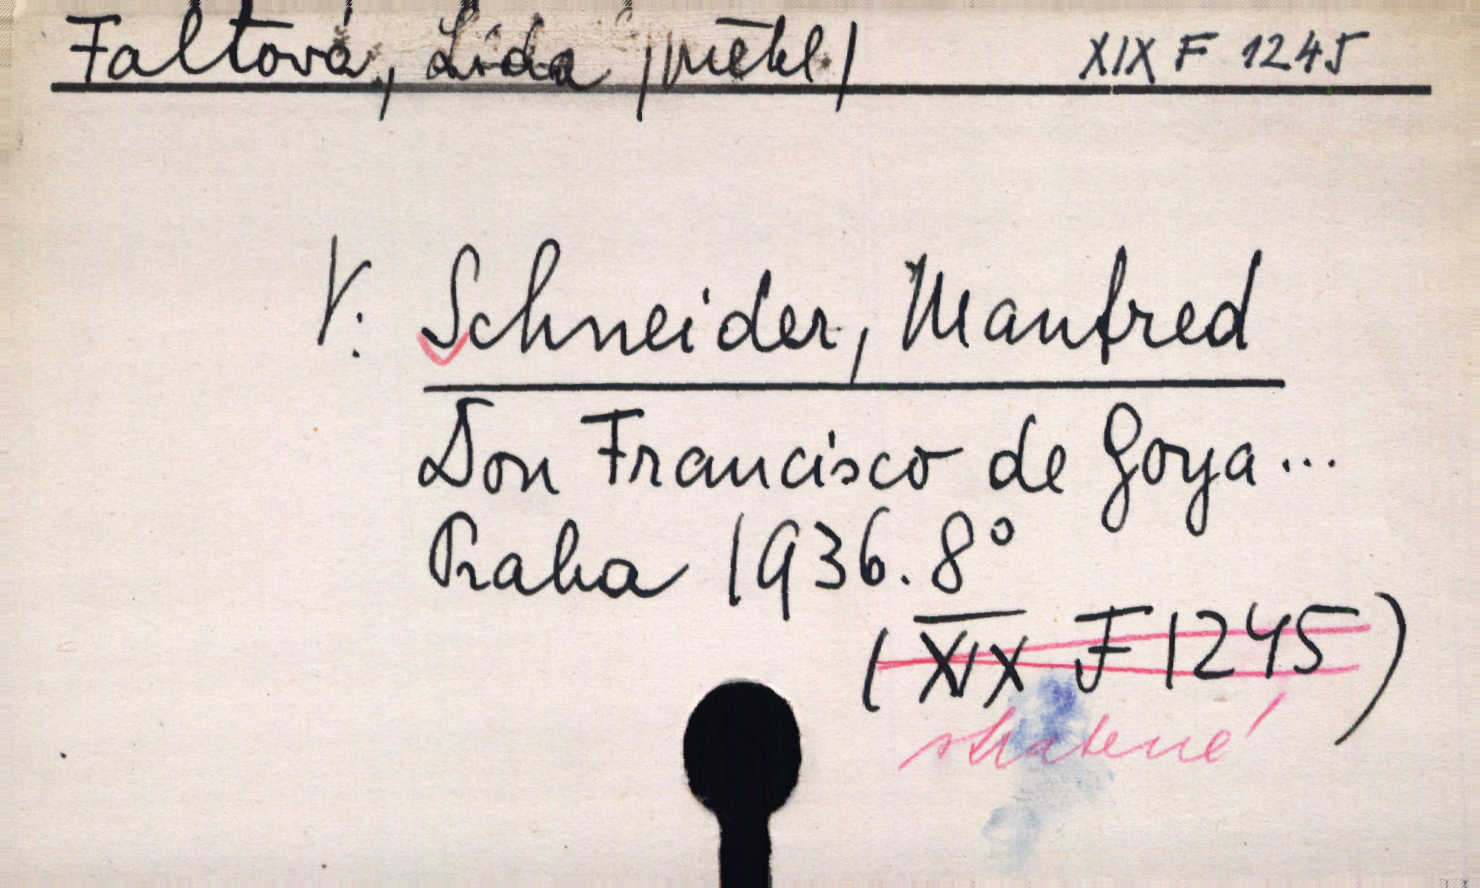 Faltová, Lída /překl/ XIX F 1245
V: Schneider, Manfred
Don Francisco de Goya...
Praha 1936. 8°
(XIX F 1245)
ztracené